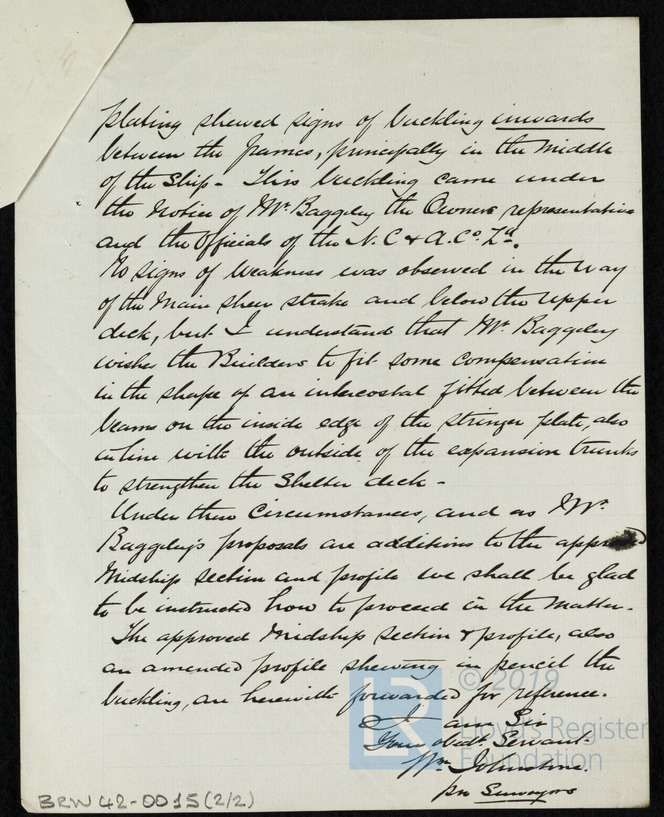 plating shewed signs of buckling inwards
between the frames, principally in the Middle
of the Ship - This buckling came under
the Notice of Mr. Baggeley the Owners representative
and the Officials of the N. C & A. Co. Ld.
No signs of Weakness was observed in the way
of the Main sheer strake and below the upper
deck, but I understand that Mr. Baggeley
wishes the Builders to fit some compensation
in the shape of an intercostal fitted between the
beams on the inside edge of the stringer plate, also
in line with the outside of the expansion trunks
to strengthen the Shelter deck -
Under these Circumstances, and as Mr.
Baggeley's proposals are additions to the approved
Midship section and profile we shall be glad
to be instructed how to proceed in the Matter.
The approved Midship section & profile, also
an amended profile shewing in pencil the
buckling, are herewith forwarded for reference.
I am Sir
Your obedt. Servant.
Wm. Johnstone.
per Surveyors
© 2019
LR
Lloyd's Register
Foundation
BRW 42-0015 (2/2)